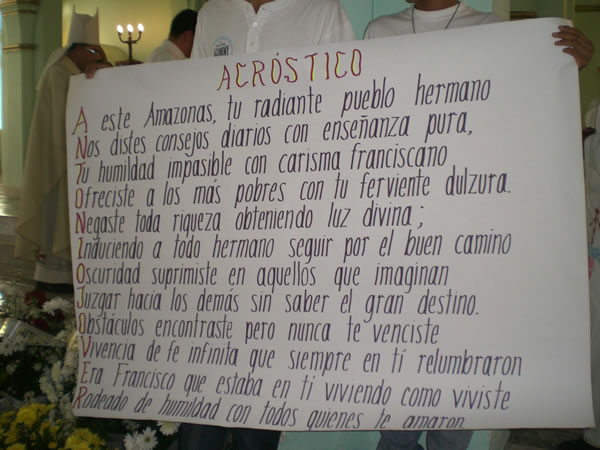 ACRÓSTICO
A este Amazonas, tu radiante pueblo hermano
Nos distes consejos diarios con enseñanza pura,
Tu humildad impasible con carisma franciscano
Ofreciste a los más pobres con tu ferviente dulzura.
Negaste toda riqueza obteniendo luz divina;
Induciendo a todo hermano seguir por el buen camino
Oscuridad suprimiste en aquellos que imaginan
Juzgar hacia los demás sin saber el gran destino.
Obstáculos encontraste pero nunca te venciste
Vivencia de fe infinita que siempre en tí relumbraron
Era Francisco que estaba en ti viviendo como viviste
Rodeado de humildad con todos quienes te amaron